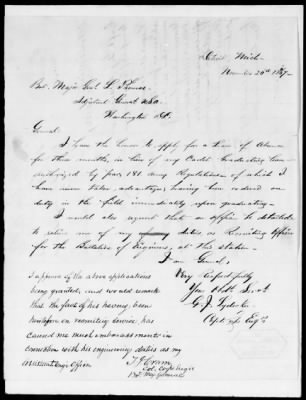 Detroit Mich
November 26th 1867
Bvt. Major Genl L. Thomas
Adjutant General U.S.A.
Washington D.C.
General,
I have the honor to apply for a Leave of Absence
for three months, in lieu of my Cadet Graduating leave
authorized by par. 181 Army Regulations of which I
have never taken advantage, having been ordered on
duty in the field immediately upon graduating.
I would also request that an officer be detailed
to relieve me of my duties as Recruiting Officer
for the Battalion of Engineers, at this station.
I am General,
Very Respectfully
Your Obdt Servt
G. J. Lydecker
Capt of Engrs
I approve of the above applications
being granted, and would remark
that the fact of his having been
on recruiting service, has
caused me much embarrassment in
connection with his engineering duties as my
assistant Engr Officer
T. J. Cram
Col. Corps Engrs
Bvt Maj General